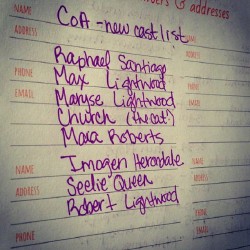 & addresses
NAME
CoA - new cast list
ADDRESS
Raphael Santiago
PHONE
Max Lightwood
EMAIL
Maryse Lightwood
Church (the cat!)
Maia Roberts
NAME
Imogen Herondale
ADDRESS
Seelie Queen
Robert Lightwood
PHONE
NAME
ADDRESS
PHONE
EMAIL